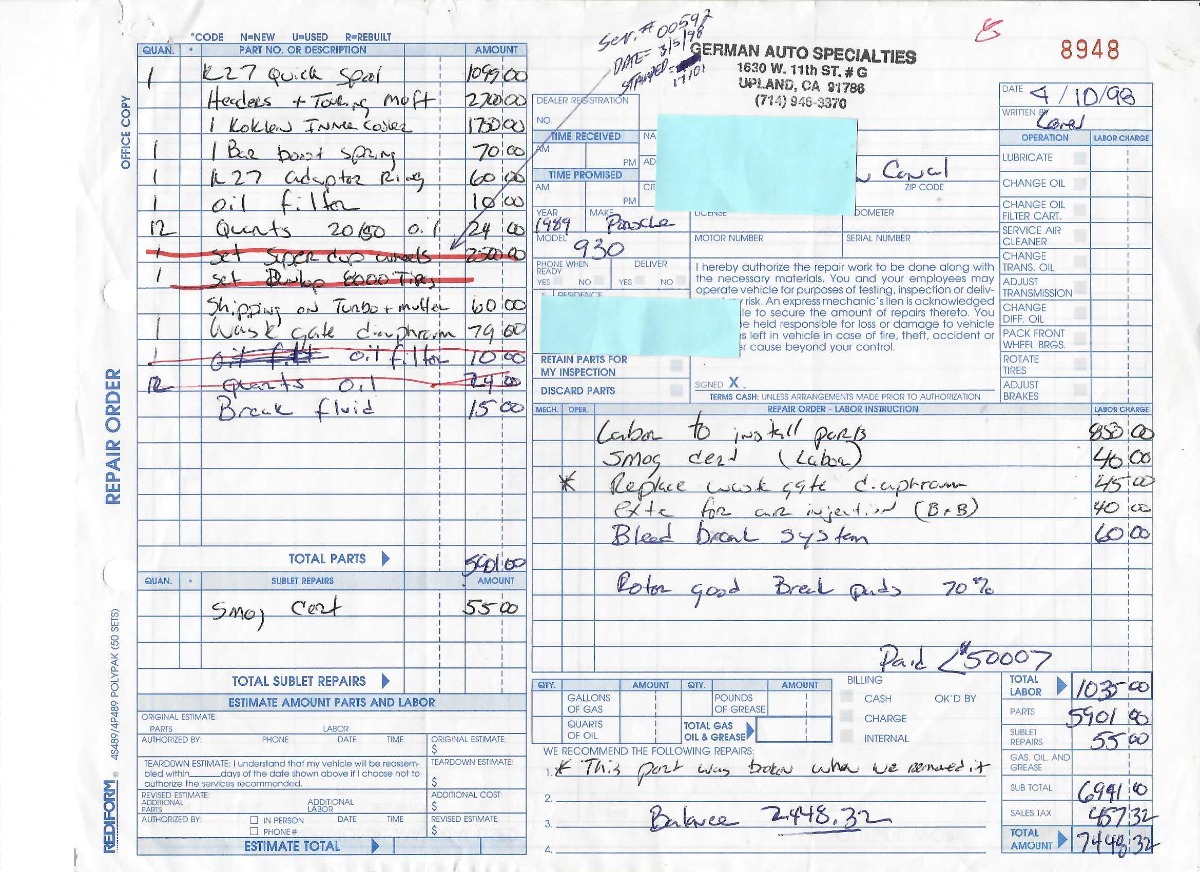 *CODE N=NEW U=USED R=REBUILT
QUAN. * PART NO. OR DESCRIPTION AMOUNT
1 K27 Quick Spool 1099 00
Headers + Touring Muff 2700 00
1 Kokln Inner Cooler 1750 00
1 1 Bar boost spring 70 00
1 K27 adaptor Ring 60 00
1 oil filter 10 00
12 Quarts 20/50 oil 24 00
1 Set Super cup wheels 2500 00
1 Set Dunlop 8000 Tires
Shipping on Turbo + muller 60 00
1 Wask gate diaphram 79 00
1 oil filtor 10 00
12 Quarts oil 24 00
Break fluid 15 00
TOTAL PARTS 5901 00
QUAN. * SUBLET REPAIRS AMOUNT
Smog Cert 55 00
TOTAL SUBLET REPAIRS
ESTIMATE AMOUNT PARTS AND LABOR
ORIGINAL ESTIMATE:
PARTS LABOR
AUTHORIZED BY: PHONE DATE TIME ORIGINAL ESTIMATE: $
TEARDOWN ESTIMATE: I understand that my vehicle will be reassem-
bled within____days of the date shown above if I choose not to
authorize the services recommended.
TEARDOWN ESTIMATE: $
REVISED ESTIMATE:
ADDITIONAL PARTS ADDITIONAL LABOR ADDITIONAL COST $
AUTHORIZED BY: IN PERSON DATE TIME REVISED ESTIMATE: $
PHONE #
ESTIMATE TOTAL
OFFICE COPY
REPAIR ORDER
REDIFORM ® 4S489/4P489 POLYPAK (50 SETS)
Ser. # 00592
DATE = 3/5/98
STAMPED =
17101
GERMAN AUTO SPECIALTIES
1630 W. 11th ST. # G
UPLAND, CA 91786
(714) 946-3370
8948
DATE 4/10/98
WRITTEN BY
DEALER REGISTRATION
NO.
TIME RECEIVED
AM PM
TIME PROMISED
AM PM
NA
AD
CIT
Canal
ZIP CODE
YEAR 1989 MAKE Porsche LICENSE ODOMETER
MODEL 930 MOTOR NUMBER SERIAL NUMBER
PHONE WHEN READY YES NO DELIVER YES NO
RESIDENCE
I hereby authorize the repair work to be done along with
the necessary materials. You and your employees may
operate vehicle for purposes of testing, inspection or deliv-
risk. An express mechanic's lien is acknowledged
le to secure the amount of repairs thereto. You
be held responsible for loss or damage to vehicle
s left in vehicle in case of fire, theft, accident or
cause beyond your control.
RETAIN PARTS FOR MY INSPECTION
DISCARD PARTS
SIGNED X
TERMS CASH: UNLESS ARRANGEMENTS MADE PRIOR TO AUTHORIZATION
OPERATION LABOR CHARGE
LUBRICATE
CHANGE OIL
CHANGE OIL FILTER CART.
SERVICE AIR CLEANER
CHANGE TRANS. OIL
ADJUST TRANSMISSION
CHANGE DIFF. OIL
PACK FRONT WHEEL BRGS.
ROTATE TIRES
ADJUST BRAKES
MECH. OPER. REPAIR ORDER - LABOR INSTRUCTION LABOR CHARGE
Labor to install parts 850 00
Smog cert (Labor) 40 00
* Replace wask gate diaphram 45 00
exta for air injection (B+B) 40 00
Bleed break system 60 00
Rotor good Break pads 70%
Paid $5000
QTY. AMOUNT QTY. AMOUNT
GALLONS OF GAS POUNDS OF GREASE
QUARTS OF OIL TOTAL GAS OIL & GREASE
BILLING
CASH OK'D BY
CHARGE
INTERNAL
WE RECOMMEND THE FOLLOWING REPAIRS:
1. * This part was broken when we removed it
2.
3. Balance 2448.32
4.
TOTAL LABOR 1035 00
PARTS 5901 00
SUBLET REPAIRS 55 00
GAS, OIL AND GREASE
SUB TOTAL 6991 00
SALES TAX 457 32
TOTAL AMOUNT 7448.32